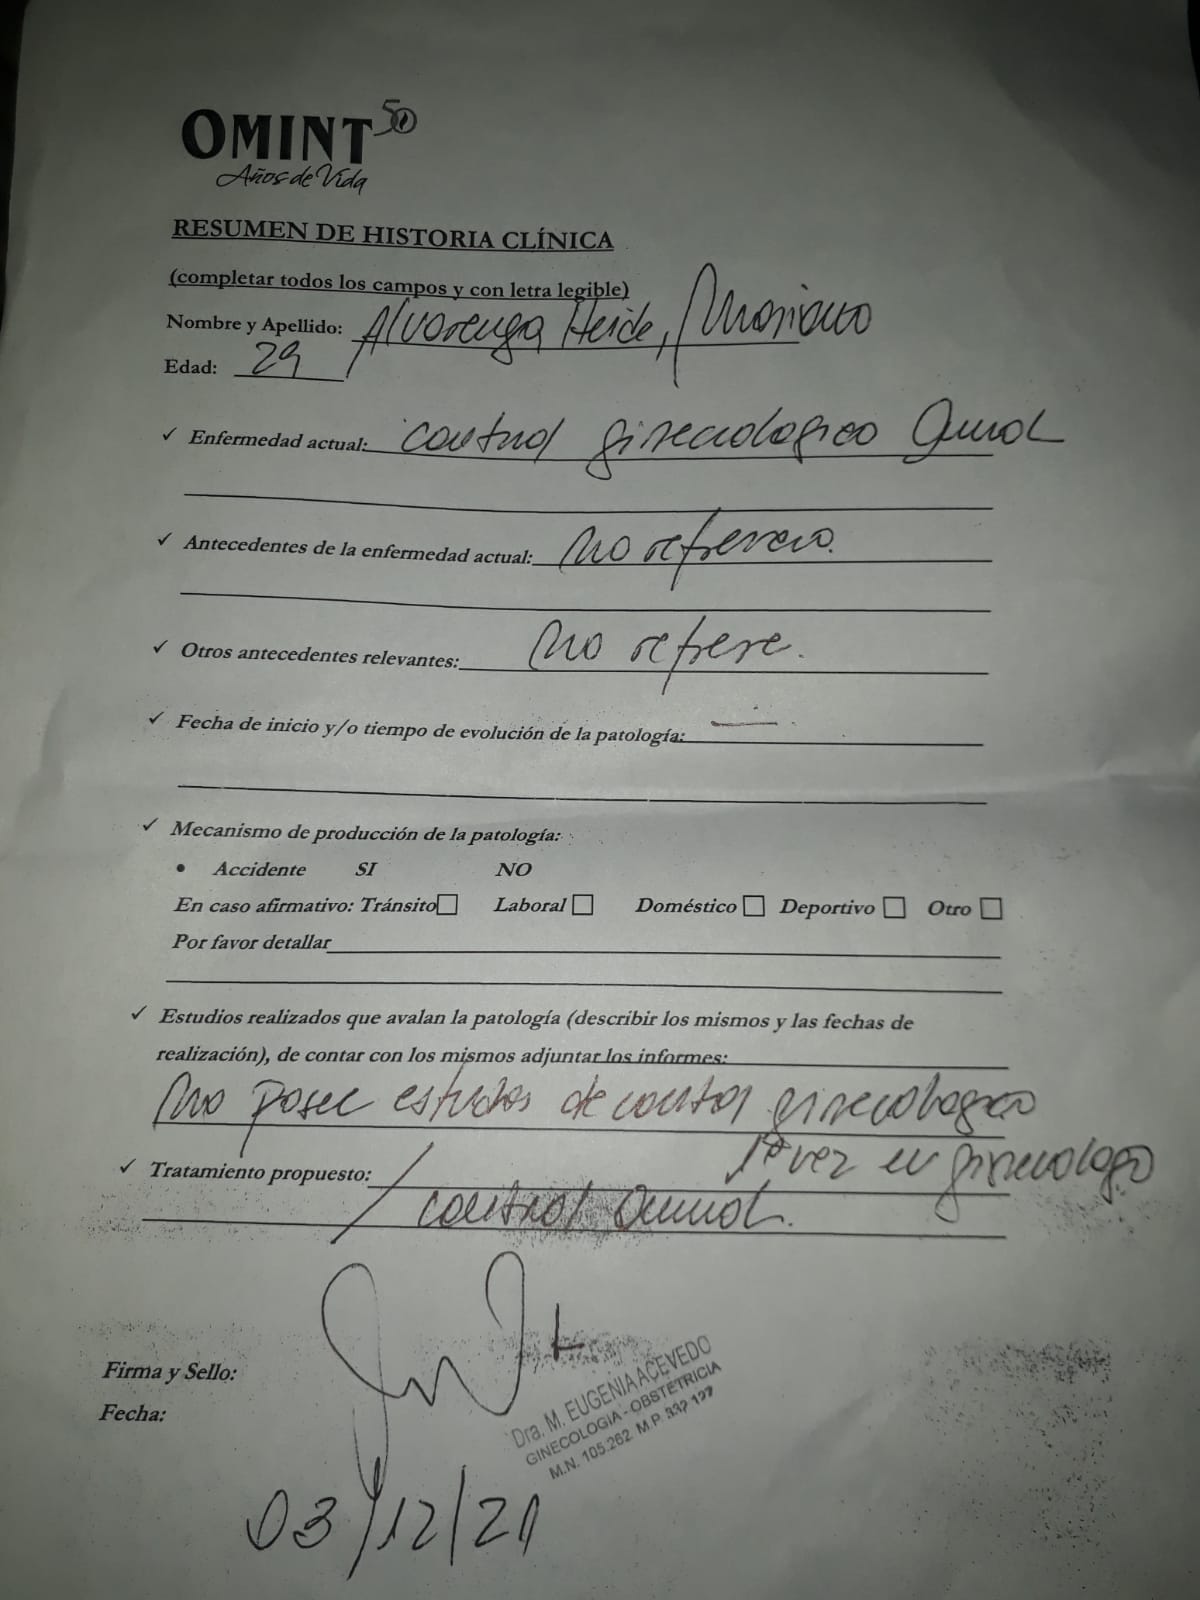 OMINT 50
Años de Vida
RESUMEN DE HISTORIA CLÍNICA
(completar todos los campos y con letra legible)
Nombre y Apellido: Alvarenga Heide,
Edad: 29
✓ Enfermedad actual: control ginecologico Anual
✓ Antecedentes de la enfermedad actual: no
✓ Otros antecedentes relevantes: no refiere.
✓ Fecha de inicio y/o tiempo de evolución de la patología: —
✓ Mecanismo de producción de la patología:
• Accidente SI NO
En caso afirmativo: Tránsito☐ Laboral☐ Doméstico☐ Deportivo☐ Otro☐
Por favor detallar
✓ Estudios realizados que avalan la patología (describir los mismos y las fechas de
realización), de contar con los mismos adjuntar los informes:
no posee estudios de control ginecologico
1ª vez en ginecologo
✓ Tratamiento propuesto:
control Anual.
Firma y Sello:
Dra. M. EUGENIA ACEVEDO
GINECOLOGIA - OBSTETRICIA
M.N. 105.262 M.P.
Fecha:
03/12/21